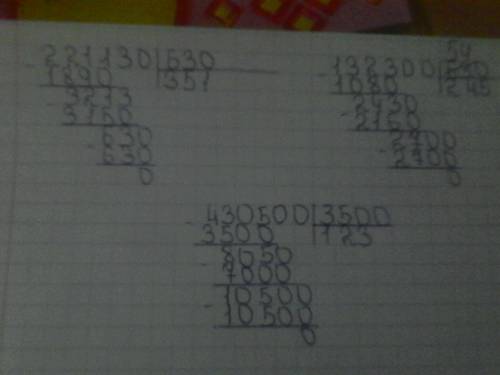 221130 | 630
1890 | 351
3213
3150
630
630
0
54
132300 | 540
1080 | 245
2430
2160
2700
2700
0
430500 | 3500
3500 | 123
8050
7000
10500
10500
0